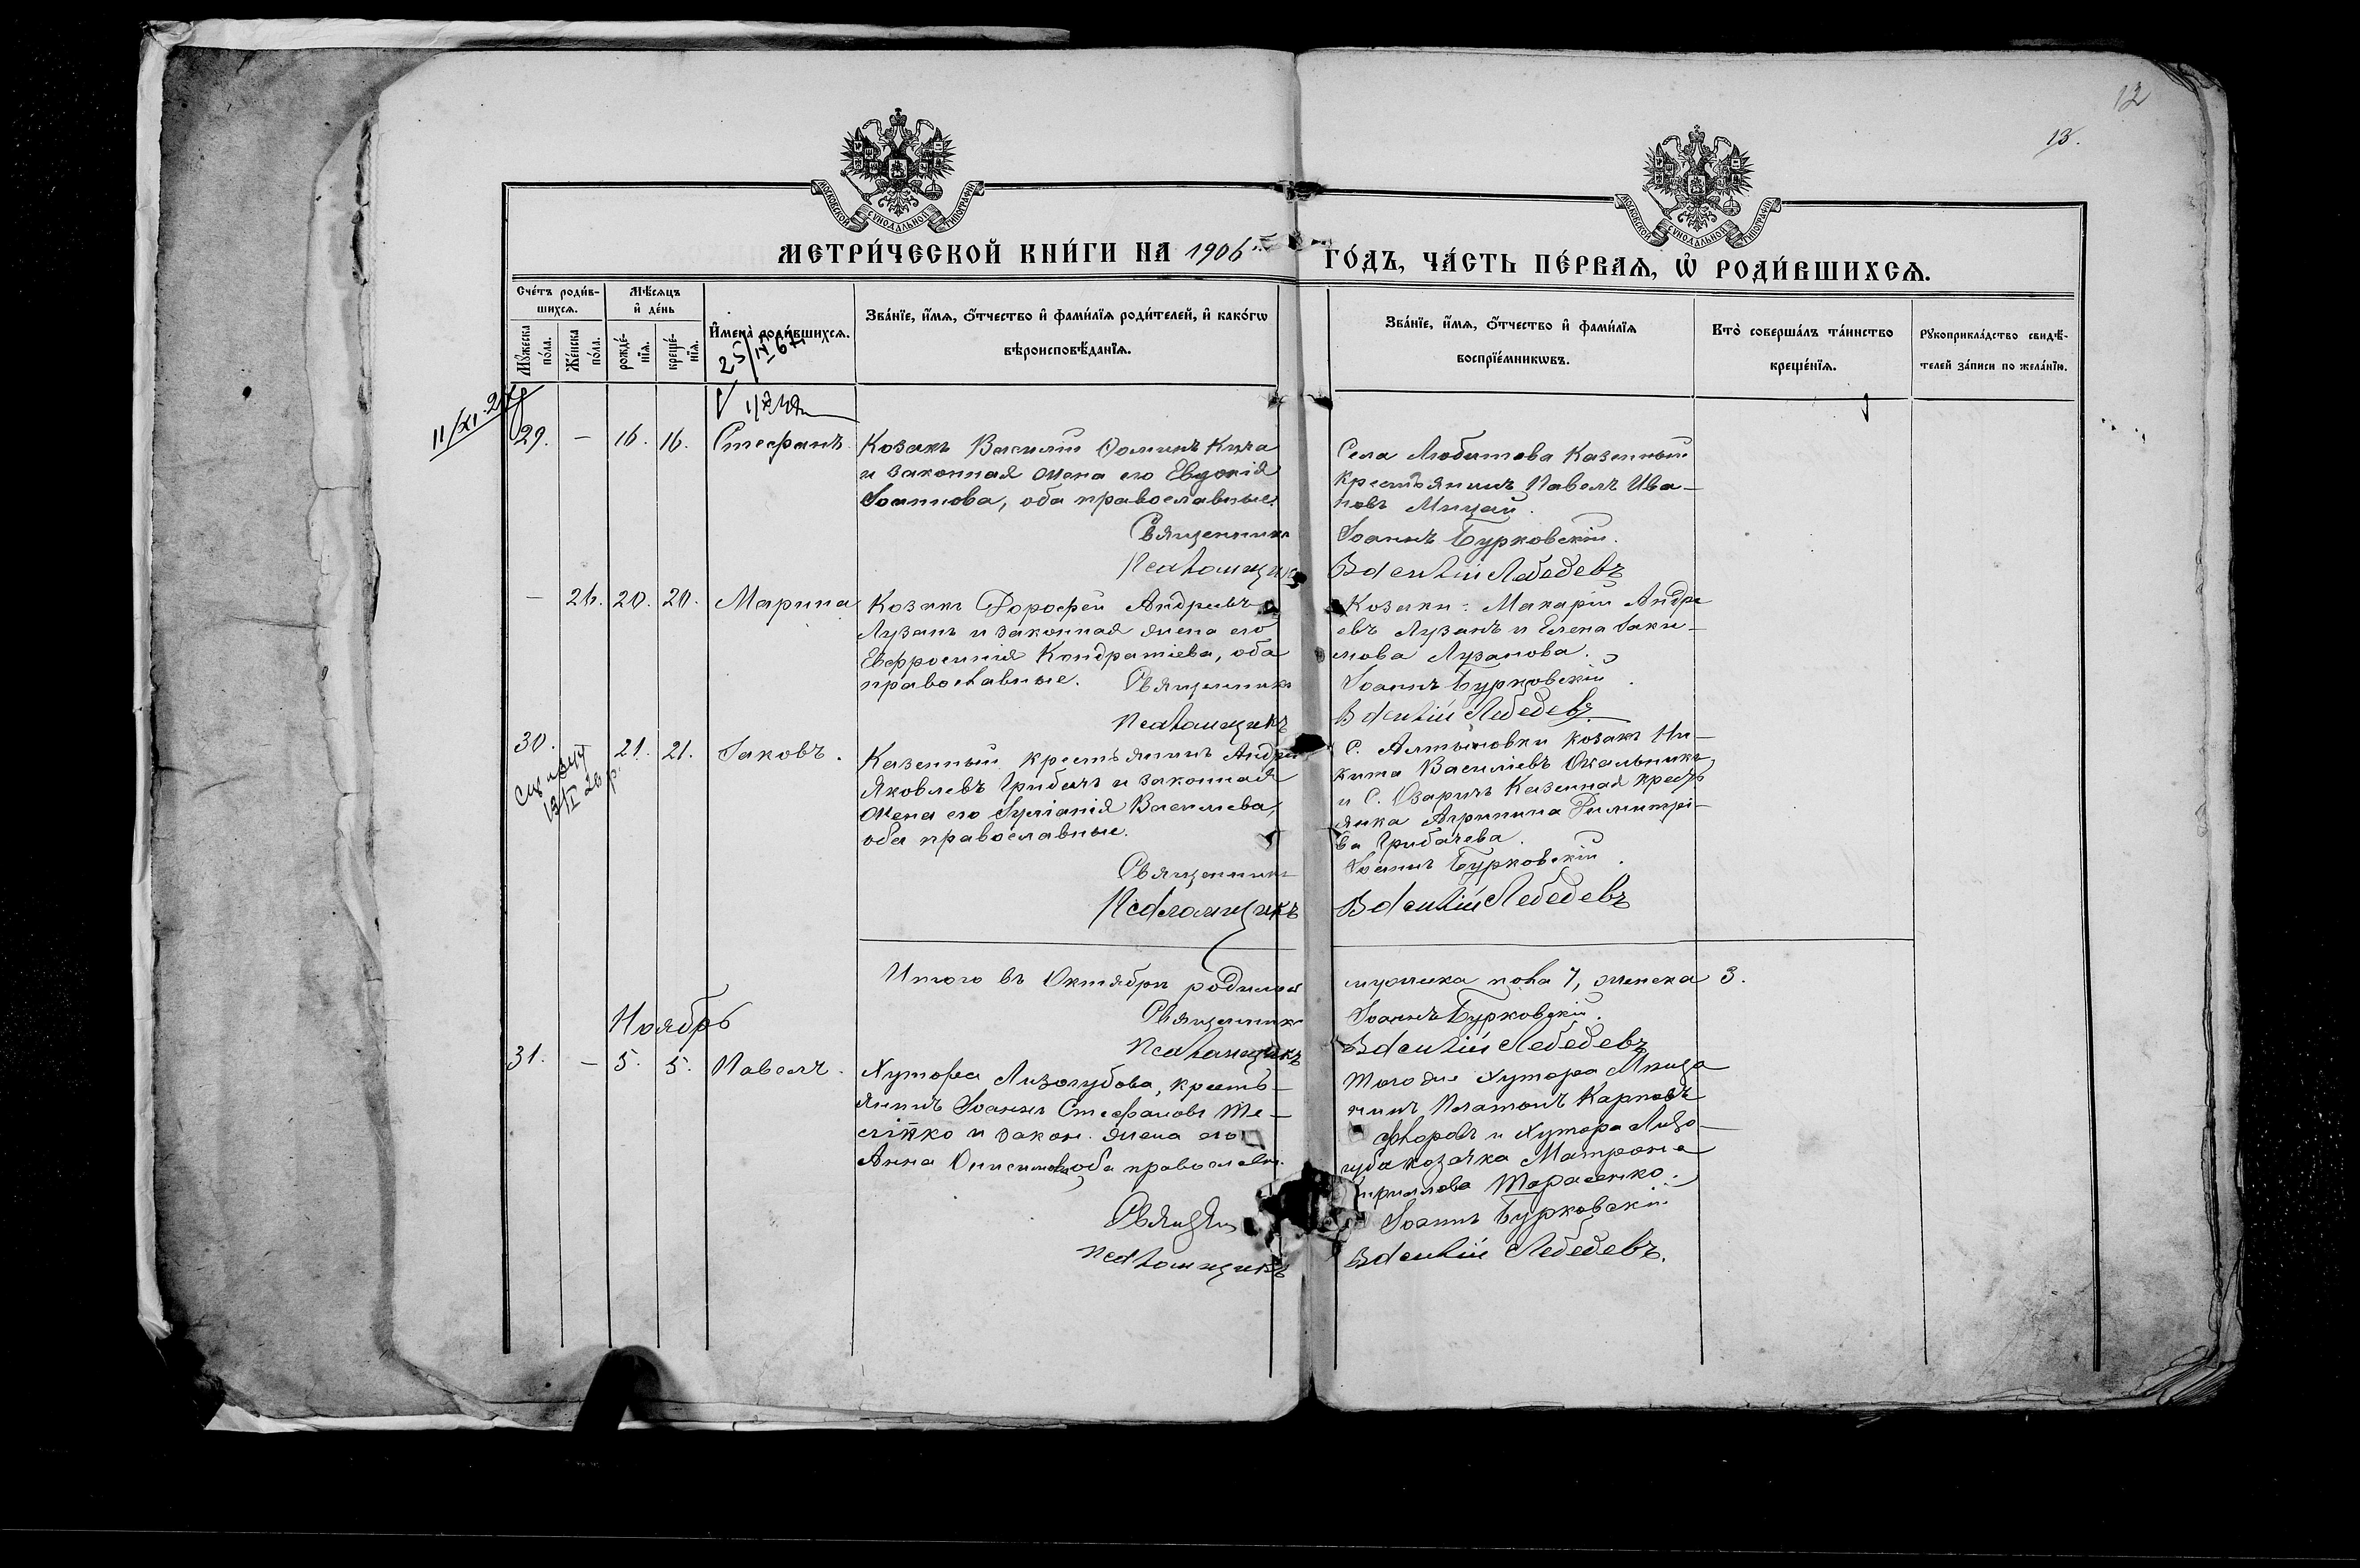 12
13.
МОСКОВСКОЙ СѴНОДАЛЬНОЙ ТИПОГРАФІИ
МОСКОВСКОЙ СѴНОДАЛЬНОЙ ТИПОГРАФІИ
МЕТРИ́ЧЕСКОЙ КНИ́ГИ НА 1906 ГО́ДЪ, ЧА́СТЬ ПЕ́РВАЯ, Ѡ҆ РОДИ́ВШИХСЯ.
Сче́тъ роди́в-
шихся.
Мꙋ́жеска по́ла.
Же́нска по́ла.
Мѣ́сяцъ
и҆ де́нь
рожде́-
нїя.
креще́-
нїя.
И҆мена̀ роди́вшихся.
Зва́нїе, и҆́мя, о҆́тчество и҆ фами́лїя роди́телей, и҆ како́гѡ
вѣроисповѣ́данїя.
Зва́нїе, и҆́мя, о҆́тчество и҆ фами́лїя
воспрїе́мникѡвъ.
Кто̀ соверша́лъ та́инство
креще́нїя.
Рꙋкоприкла́дство свидѣ́-
телей за́писи по жела́нїю.
29. — 16. 16. Стефанъ
Козакъ Василій Фоминъ Куча
и законная жена его Евдокія
Іоаннова, оба православные.
Священникъ
Псаломщикъ
Села Любитова Казенный
крестьянинъ Павелъ Ива-
новъ Мицай.
Іоаннъ Бурковскій.
Василій Лебедевъ
— 26. 20. 20. Марина
Козакъ Дорофей Андреевъ
Лузанъ и законная жена его
Евфросинія Кондратіева, оба
православные. Священникъ
Псаломщикъ
Козаки: Макарій Андре
евъ Лузанъ и Елена Іаки-
мова Лузанова.
Іоаннъ Бурковскій.
Василій Лебедевъ
30. 21. 21. Іаковъ.
Казенный крестьянинъ Андрей
Яковлевъ Грибачъ и законная
жена его Іуліанія Васильева,
оба православные.
Священникъ
Псаломщикъ
С. Алтыновки козакъ Ни-
кита Васильевъ
и С. Озаричъ Казенная крестъ
янка Агрипина Димитрі-
ва Грибачева.
Іоаннъ Бурковскій.
Василій Лебедевъ
Итого въ Октябрѣ родилося
мужеска пола 7, женска 3.
Священникъ
Псаломщикъ
Іоаннъ Бурковскій.
Василій Лебедевъ
Ноябрь
31. — 5. 5. Павелъ.
Хутора Лизогубова, кресть-
янинъ Іоаннъ Стефановъ
и закон. жена его
Анна Онисимова, оба православн.
Псаломщикъ
Того же Хутора
Платонъ Карповъ
и Хутора Лизо-
губа козачка Матрона
Кирилова Тарасенко.
Іоаннъ Бурковскій
Василій Лебедевъ.